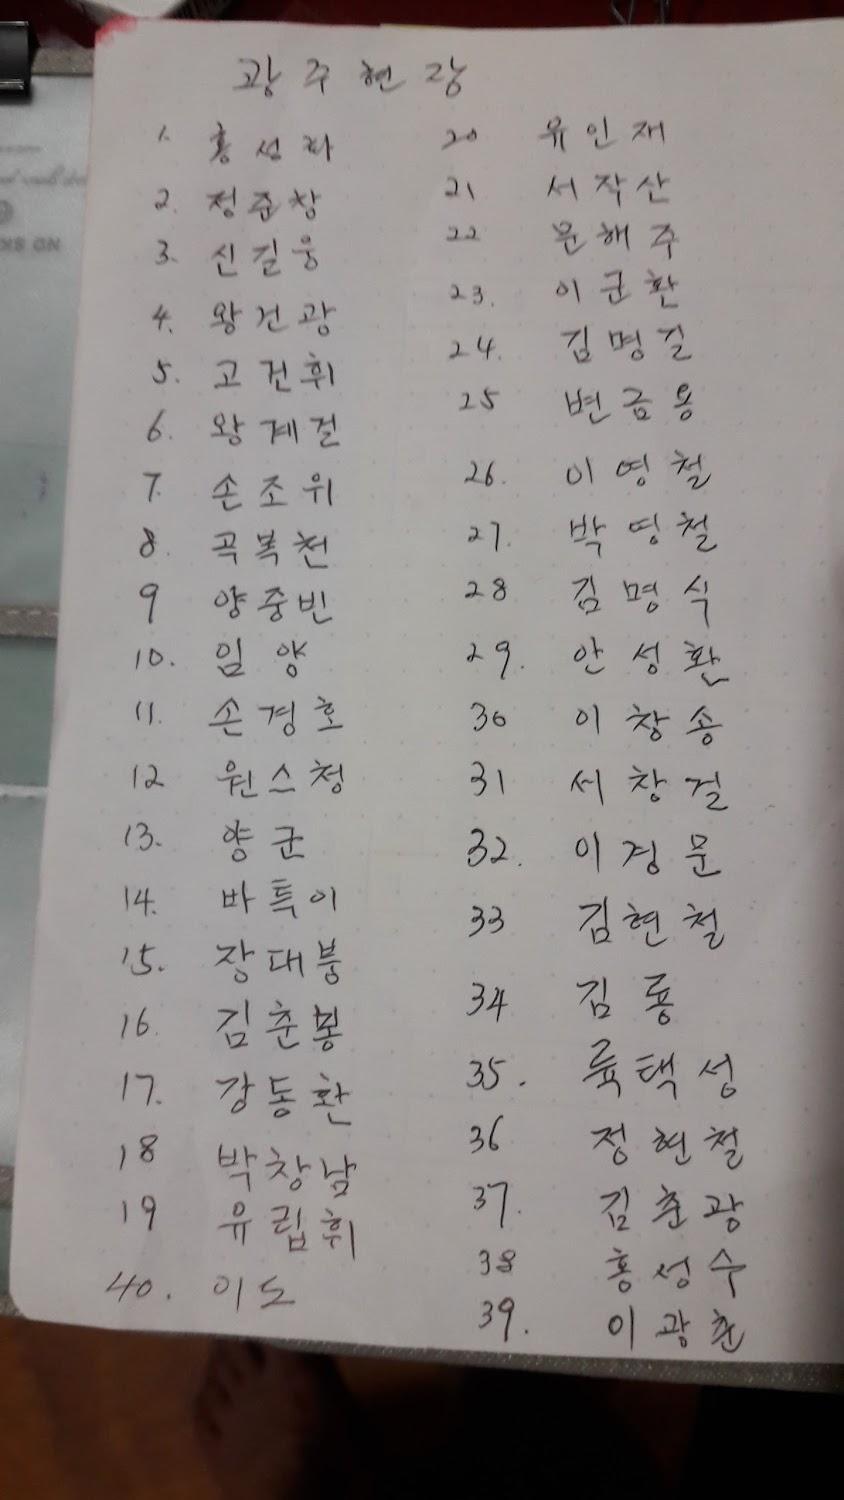 광주현장
1. 홍성파
2. 정준창
3. 신길웅
4. 왕건광
5. 고건휘
6. 왕계걸
7. 손조위
8. 곡복천
9 양중빈
10. 임양
11. 손경호
12 원스청
13. 양군
14. 바특이
15. 장대붕
16. 김춘봉
17. 강동환
18 박창남
19 유립휘
40. 이도
20 유인재
21 서작산
22 문해주
23. 이군환
24. 김명길
25 변금용
26. 이영철
27. 박영철
28 김명식
29. 안성환
30 이창송
31 서창걸
32. 이경문
33 김현철
34 김룡
35. 륙택성
36 정현철
37. 김춘광
38 홍성수
39. 이광춘
NO SK